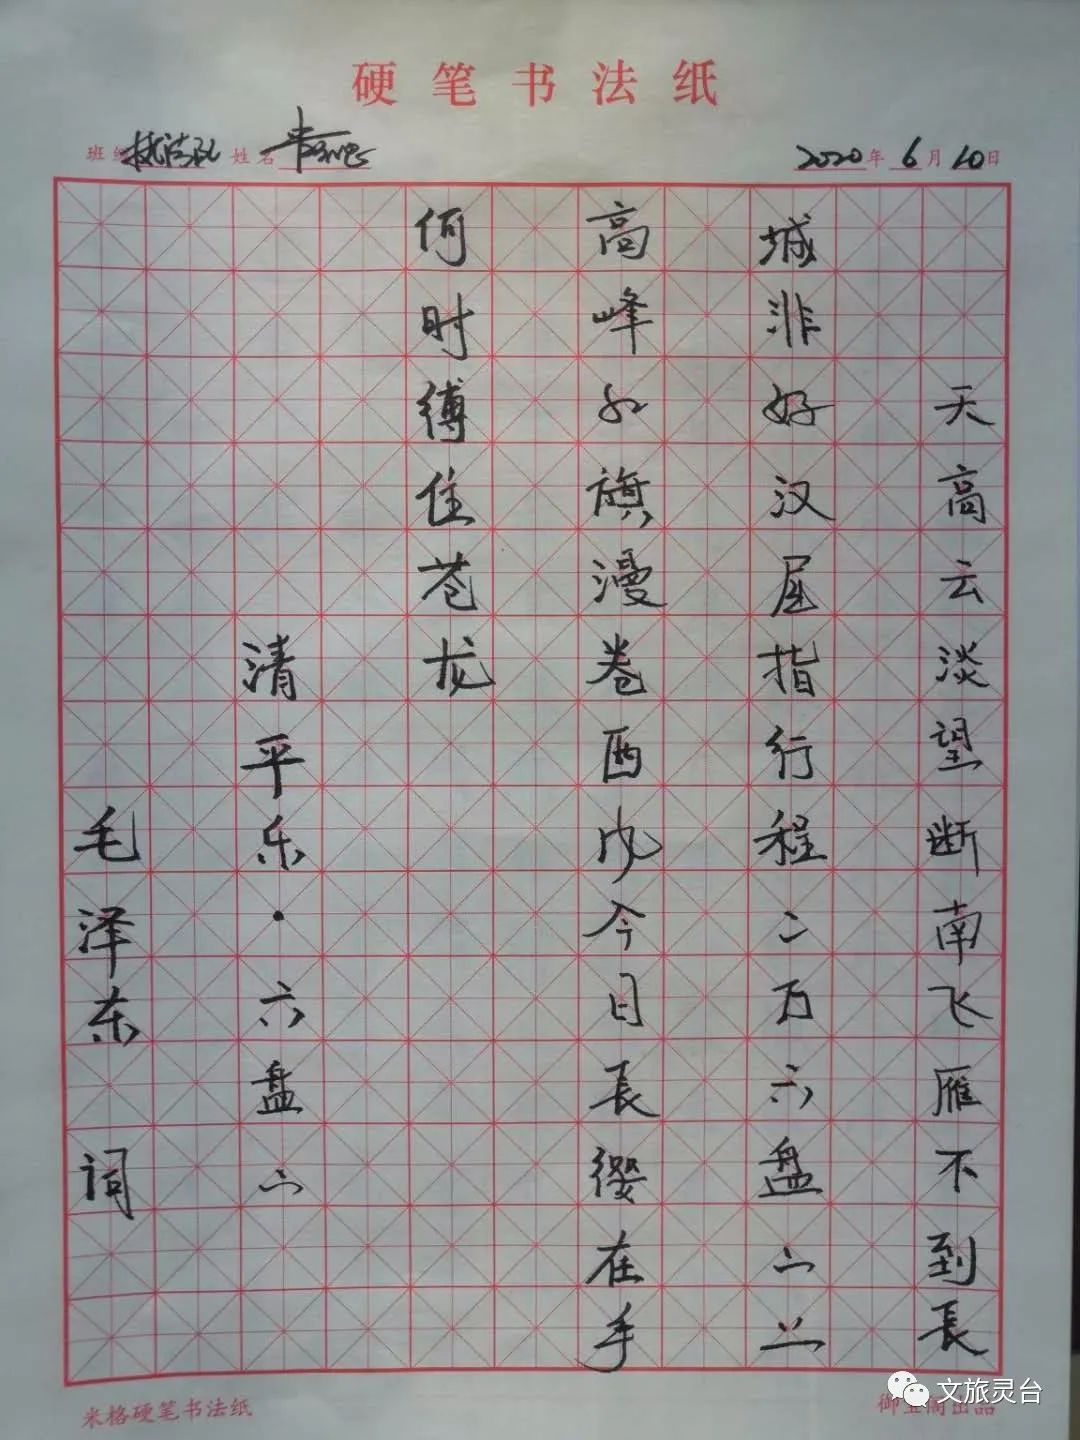 硬笔书法纸
班级 执法队 姓名 2020年6月10日
天高云淡望断南飞雁不到長
城非好汉屈指行程二万六盘山上
高峰红旗漫卷西风今日長缨在手
何时缚住苍龙
清平乐·六盘山
毛泽东 词
米格硬笔书法纸
出品
文旅灵台